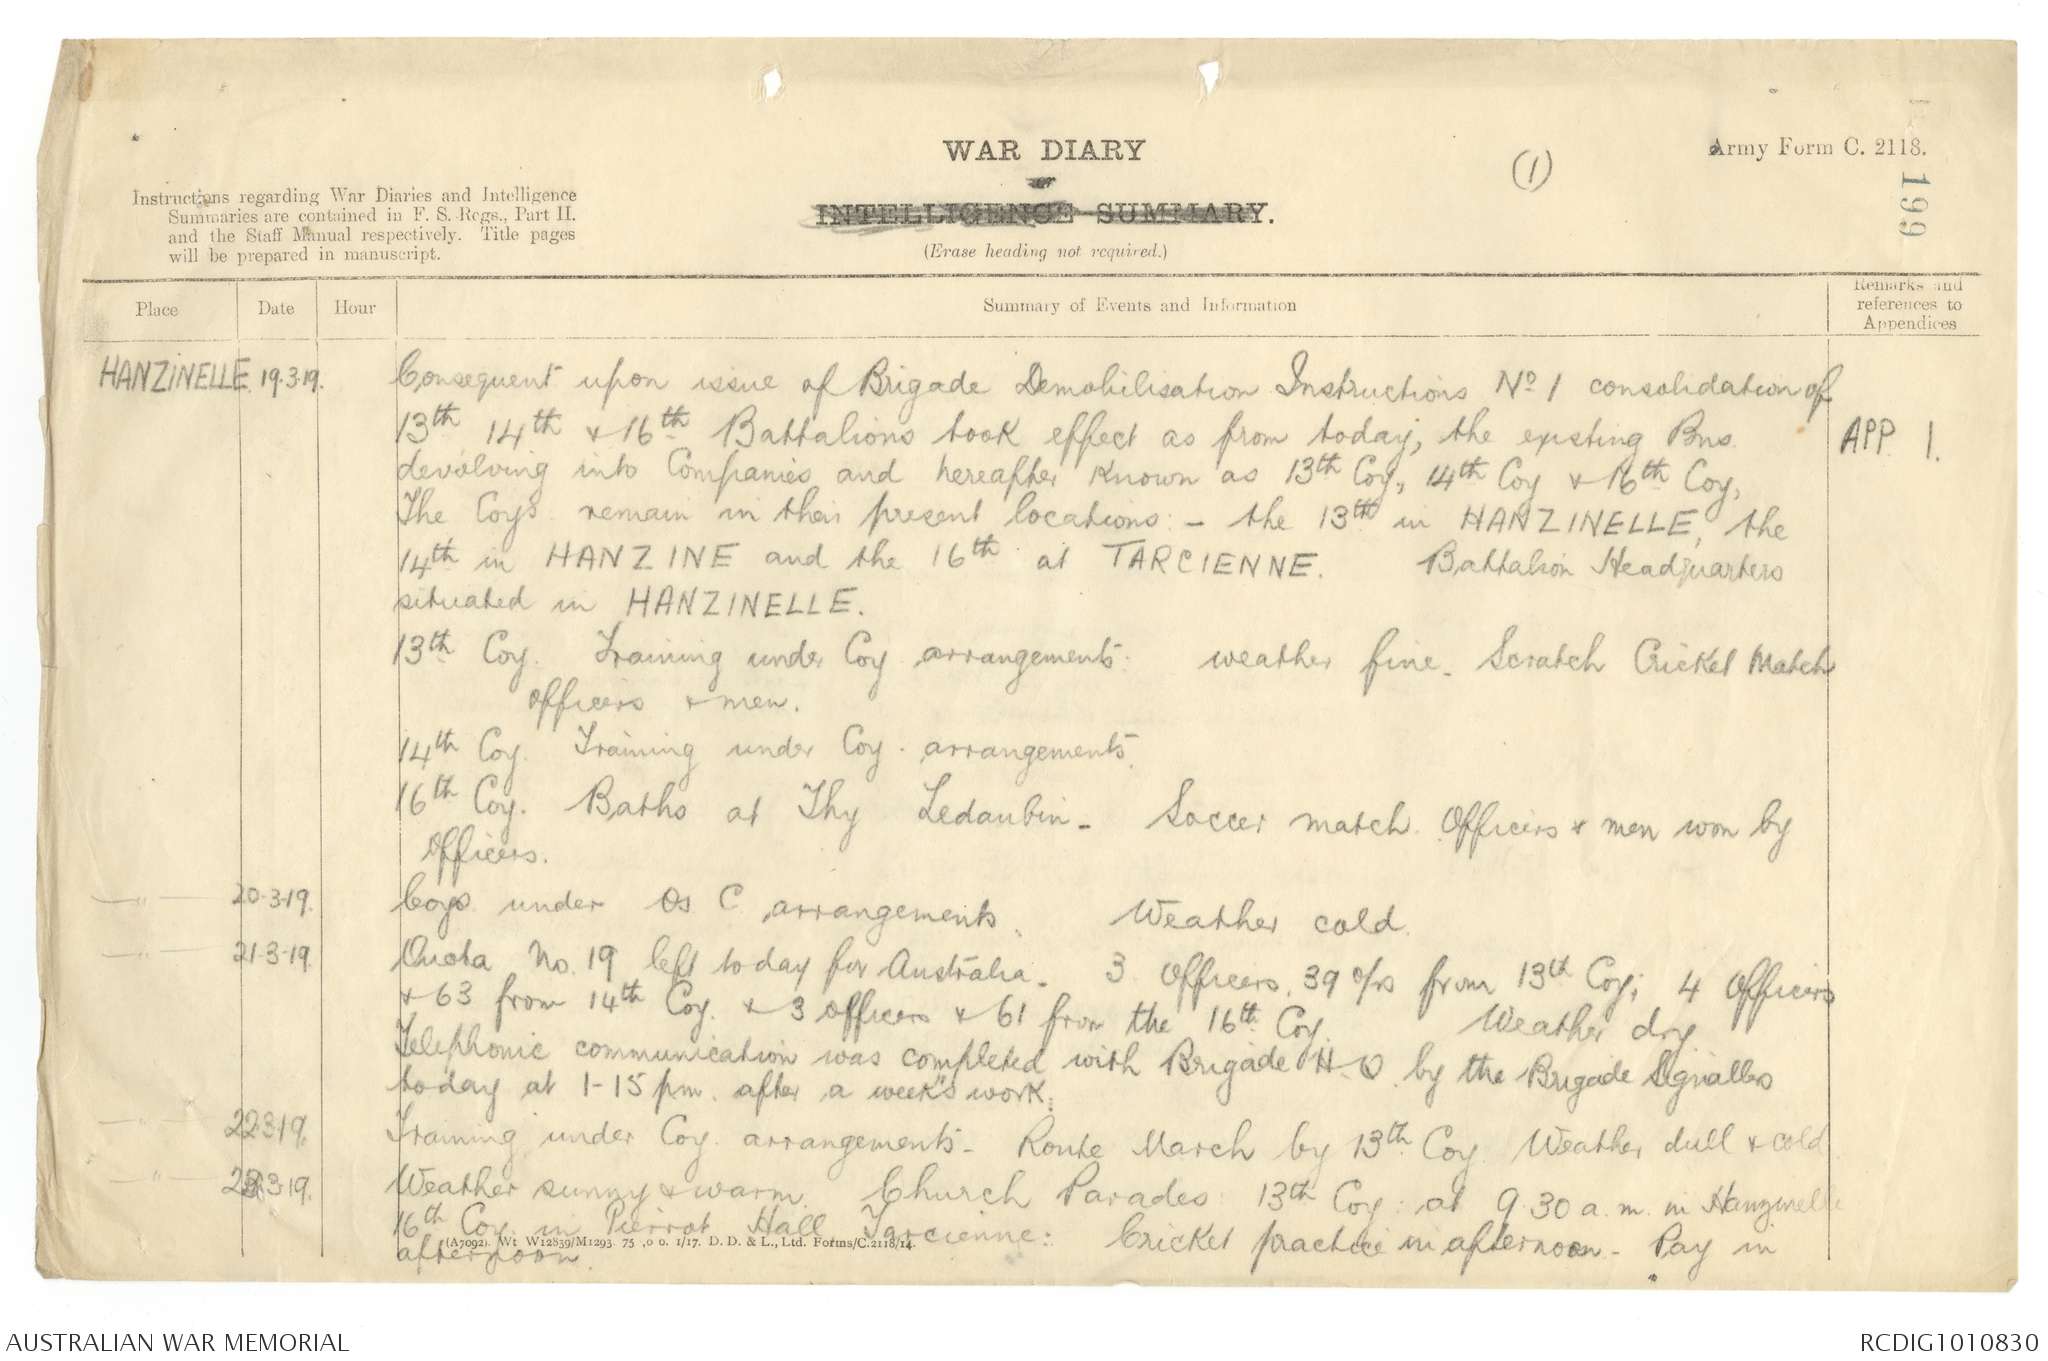 WAR DIARY
or
INTELLIGENCE SUMMARY.
(Erase heading not required.)
(1)
Army Form C. 2118.
199
Instructions regarding War Diaries and Intelligence
Summaries are contained in F. S. Regs., Part II.
and the Staff Manual respectively. Title pages
will be prepared in manuscript.
Place Date Hour Summary of Events and Information Remarks and
references to
Appendices
HANZINELLE 19.3.19. Consequent upon issue of Brigade Demobilisation Instructions No 1 consolidation of
13th 14th & 16th Battalions took effect as from today, the existing Bns. APP 1.
devolving into Companies and hereafter known as 13th Coy, 14th Coy & 16th Coy,
The Coys remain in their present locations:- the 13th in HANZINELLE, the
14th in HANZINE and the 16th at TARCIENNE. Battalion Headquarters
situated in HANZINELLE.
13th Coy. Training under Coy arrangements. weather fine. Scratch Cricket Match
Officers & men.
14th Coy. Training under Coy. arrangements.
16th Coy. Baths at Thy Ledaubin - Soccer match Officers & men won by
Officers.
-"- 20.3.19. Coys under Os C arrangements. Weather cold.
-"- 21-3-19. Quota No. 19 left today for Australia. 3 Officers. 39 o/rs from 13th Coy; 4 Officers
& 63 from 14th Coy. & 3 officers & 61 from the 16th Coy. Weather dry.
Telephonic communication was completed with Brigade H.Q. by the Brigade Signallers
today at 1-15 pm. after a week's work.
-"- 22.3.19. Training under Coy. arrangements - Route March by 13th Coy. Weather dull & cold.
-"- 23.3.19. Weather sunny & warm. Church Parades: 13th Coy: at 9.30 a.m. in Hanzinelle
16th Coy. in Pierrot Hall Tarcienne: Cricket practice in afternoon - Pay in
afternoon.
(A7092). Wt W12839/M1293. 75 ,0 0. 1/17. D. D. & L., Ltd. Forms/C.2118/14.
AUSTRALIAN WAR MEMORIAL
RCDIG1010830